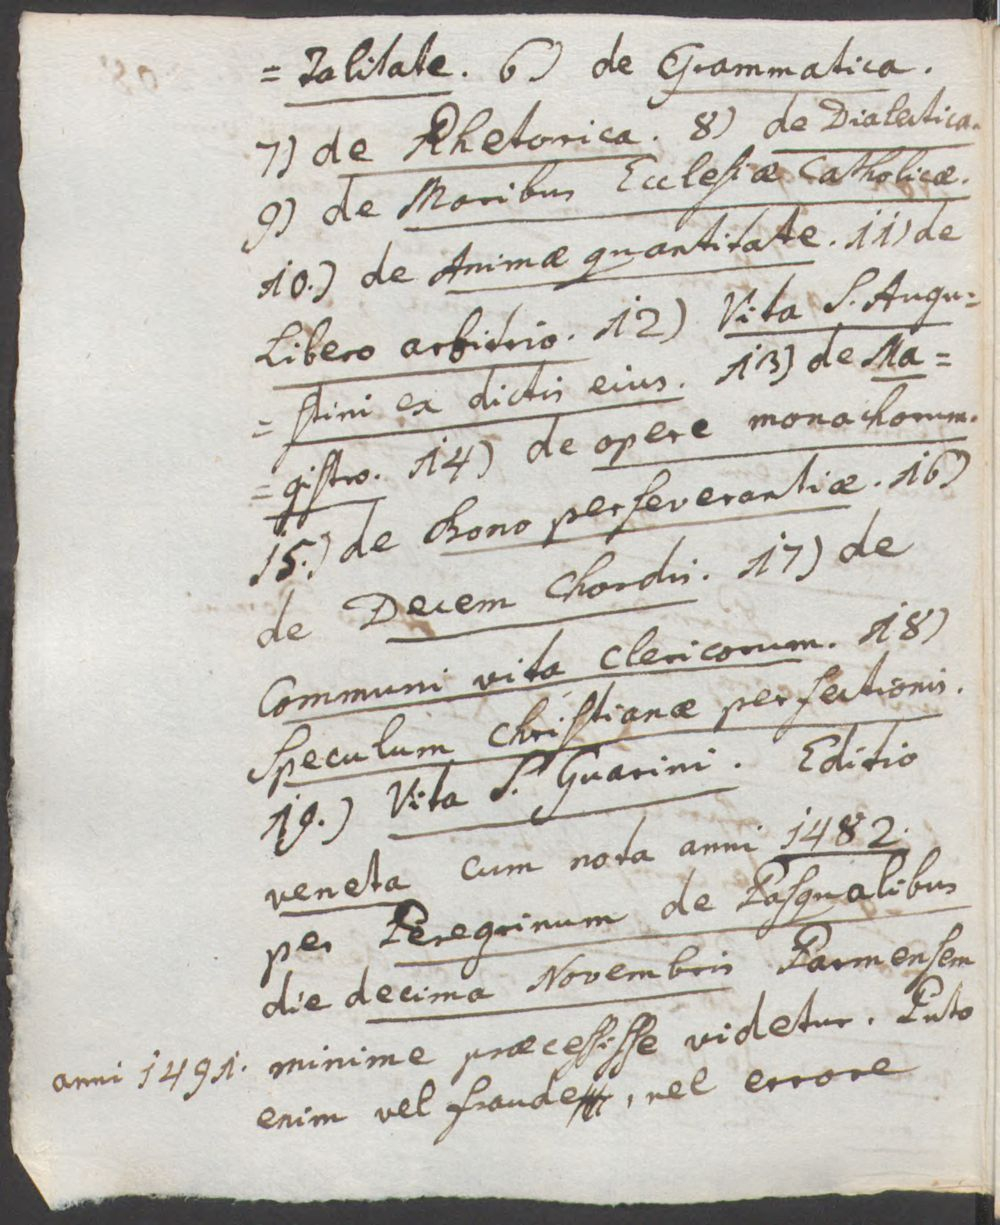 = talitate. 6) de Grammatica.
7) de Rhetorica. 8) de Dialectica.
9) de Moribus Ecclesiæ Catholicæ.
10.) de Animæ quantitate. 11) de
Libero arbitrio. 12) Vita S. Augu=
= stini ex dictis eius. 13) de Ma=
= gistro. 14) de opere monachorum.
15.) de dono perseverantiæ. 16)
de Decem Chordis. 17) de
Communi vita clericorum. 18)
Speculum christianæ perfectionis.
19.) Vita S. Guarini. Editio
veneta cum nota anni 1482.
per Peregrinum de Pasqualibus
die decima Novembris Parmensem
anni 1491. minime præcessisse videtur. Puto
enim vel fraude, vel errore